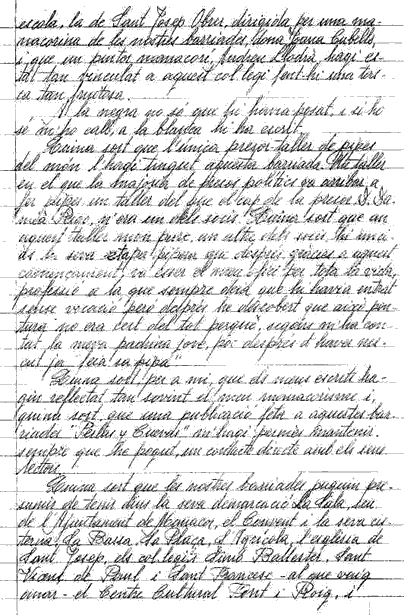 escola, la de Sant Josep Obrer, dirigida per una ma-
nacorina de les nostres barriades, dona Joana Cubells,
i, que un pintor manacorí, Andreu Llodrà, hagi es-
tat tan vinculat a aquest col·legi fent-hi una tas-
ca tan fructosa.
A la negra no sé que hi havia posat, i si ho
sé m'ho call, a la blanca hi ha escrit
Quina sort que l'única presó-taller de pipes
del món l'hagi tingut aquesta barriada. Un taller
en el que la majoria de presos polítics va arribar a
fer pipes, un taller del que el cap de la presó, D.
meà Roig, n'era un dels socis. Quina sort que an
aquest taller mon pare, un altre dels socis, hi inici-
ds la seva etapa pipera que després, gràcies a aquest
començament, va esser el meu ofici per tota la vida,
professió a la que sempre deia que hi havia entrat
sense vocació però després he descobert que això pen-
tura no era cert del tot perquè, segons m'ha con-
tat la meva padrina jove, poc després d'haver nas-
cut ja "feia sa pipa"
Quina sort per a mi, que els meus escrits ha-
gin reflectat tan sovint el meu manacorisme i,
quina sort, que una publicació feta a aquestes bar-
riades "Perlas y Cuevas" m'hagi permès mantenir,
sempre que he pogut, un contacte directe amb els seus
lectors.
Quina sort que les nostres barriades puguin pre-
sumir de tenir dins la seva demarcació La Sala, seu
de l'Ajuntament de Manacor, el Convent i la seva cis-
terna, Sa Bassa, Sa Plaça, S'Agrícola, l'església de
Sant Josep, els col·legis Simó Ballester, Sant
Vicenç de Paul i Sant Francesc - al que vaig
anar - el Centre Cultural Font i Roig, i